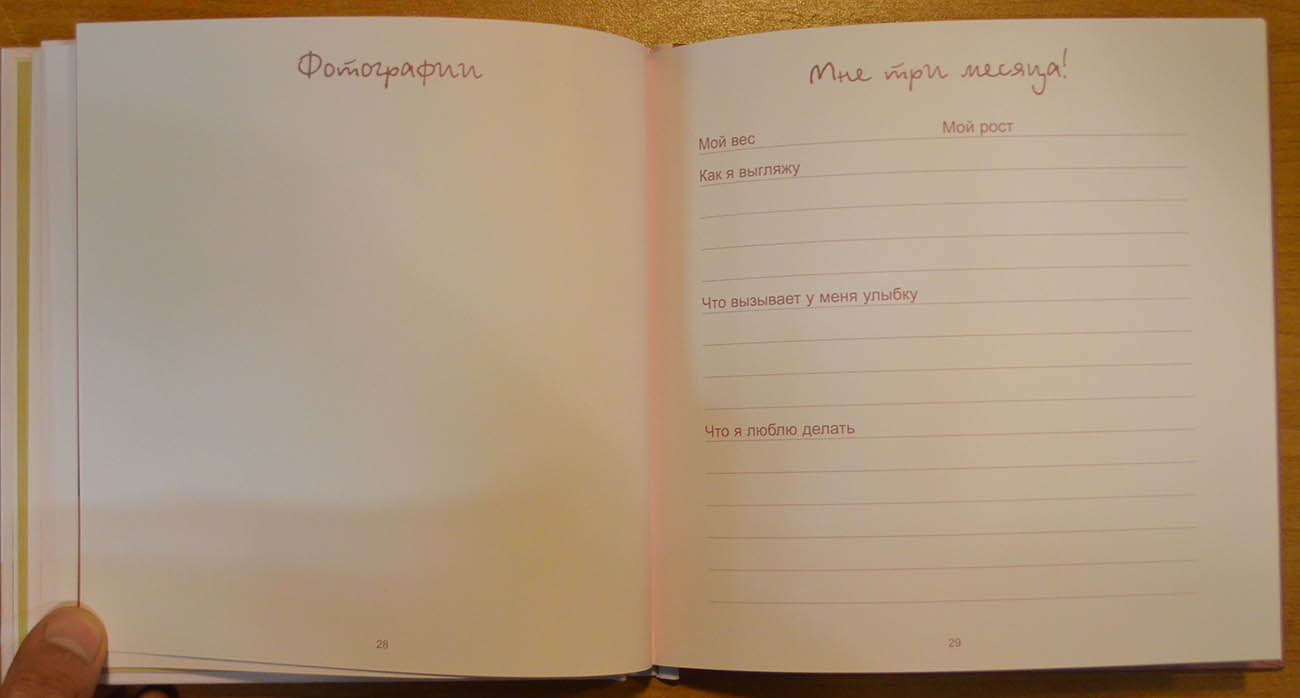 Фотографии
28
Мне три месяца!
Мой вес Мой рост
Как я выгляжу
Что вызывает у меня улыбку
Что я люблю делать
29